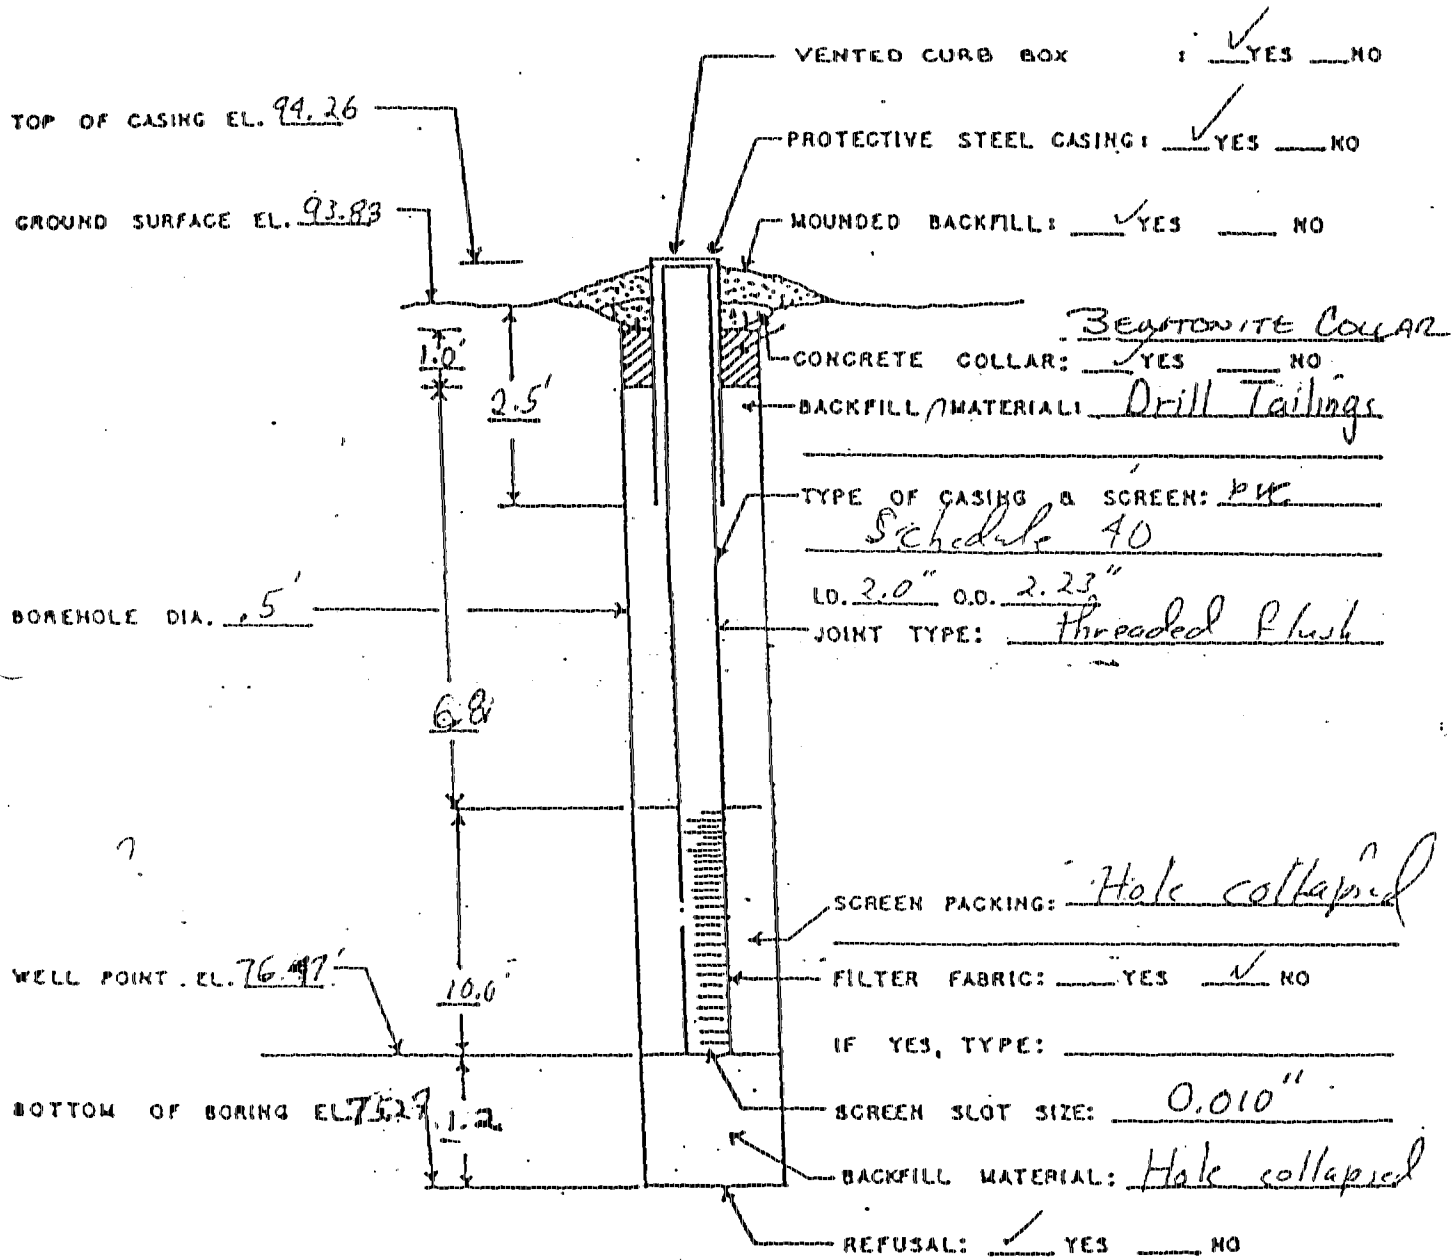 VENTED CURB BOX : ✓ YES NO
TOP OF CASING EL. 94.26
PROTECTIVE STEEL CASING: ✓ YES NO
GROUND SURFACE EL. 93.83
MOUNDED BACKFILL: ✓ YES NO
BENTONITE COLLAR
1.0'
CONCRETE COLLAR: ✓ YES NO
2.5'
BACKFILL MATERIAL: Drill Tailings
TYPE OF CASING & SCREEN: PVC
Schedule 40
I.D. 2.0" O.D. 2.23"
BOREHOLE DIA. .5'
JOINT TYPE: threaded flush
6.8'
?
SCREEN PACKING: Hole collapsed
WELL POINT EL. 76.47'
10.0'
FILTER FABRIC: YES ✓ NO
IF YES, TYPE:
BOTTOM OF BORING EL. 75.27
1.2
SCREEN SLOT SIZE: 0.010"
BACKFILL MATERIAL: Hole collapsed
REFUSAL: ✓ YES NO